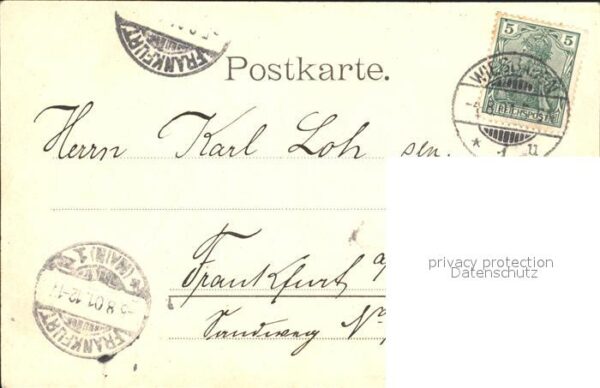 FRANKFURT
5 5
REICHSPOST
Postkarte.
Herrn Karl Loh sen.
privacy protection
Datenschutz
Frankfurt a/
Sandweg No
* (MAIN) 1 *
-5.8.01.12-1
FRANKFURT